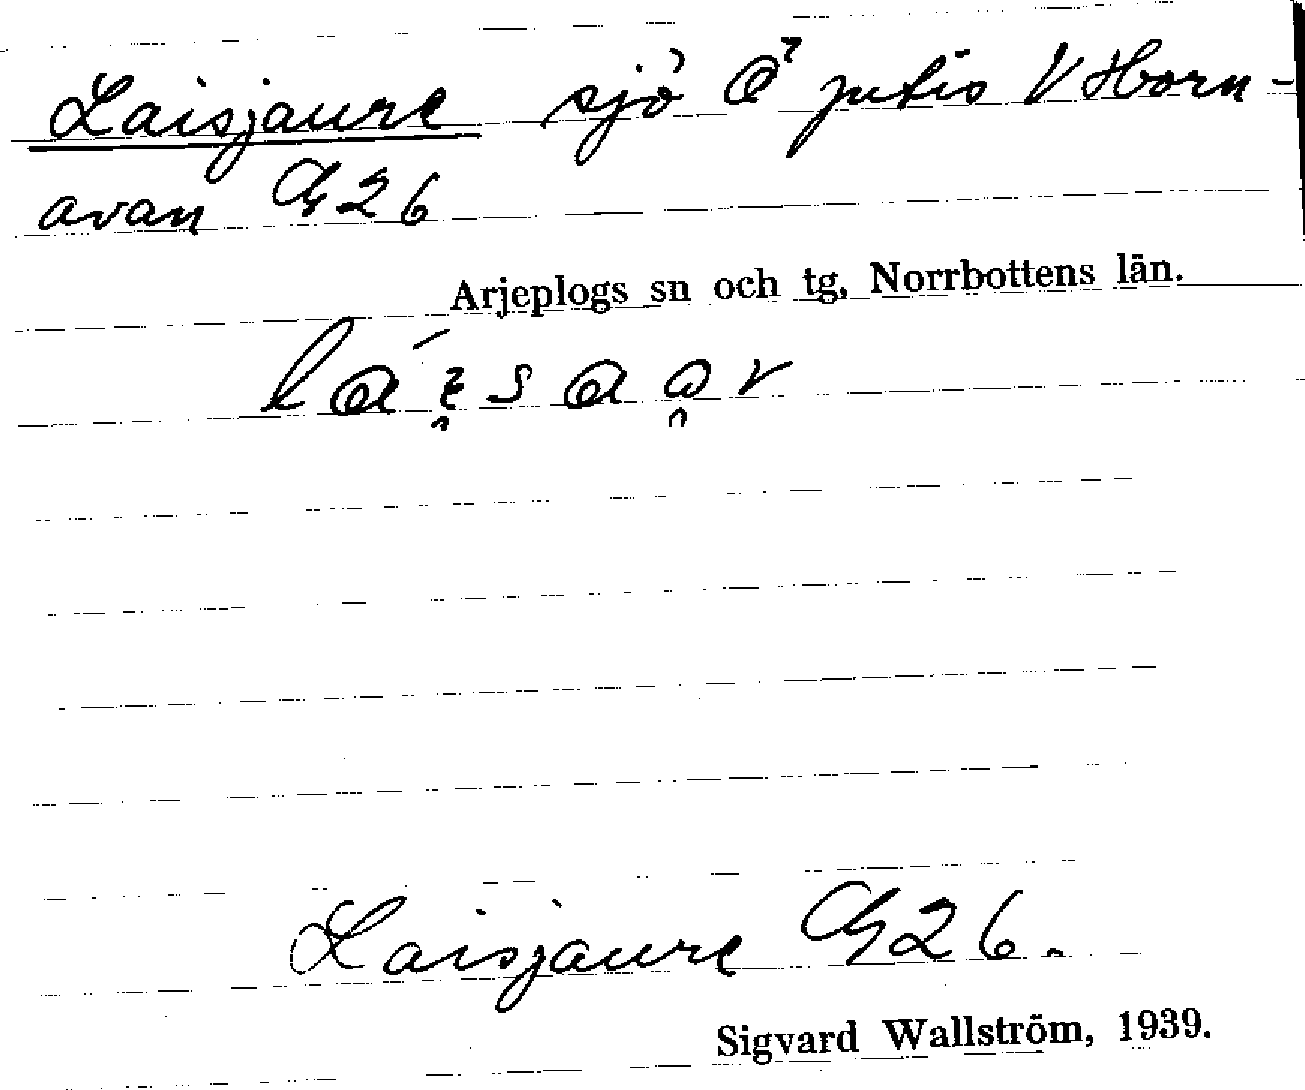 Laisjaure sjö Ö jutis V Horn-
avan G26
Arjeplogs sn och tg, Norrbottens län.
Laisjaure G26.
Sigvard Wallström, 1939.